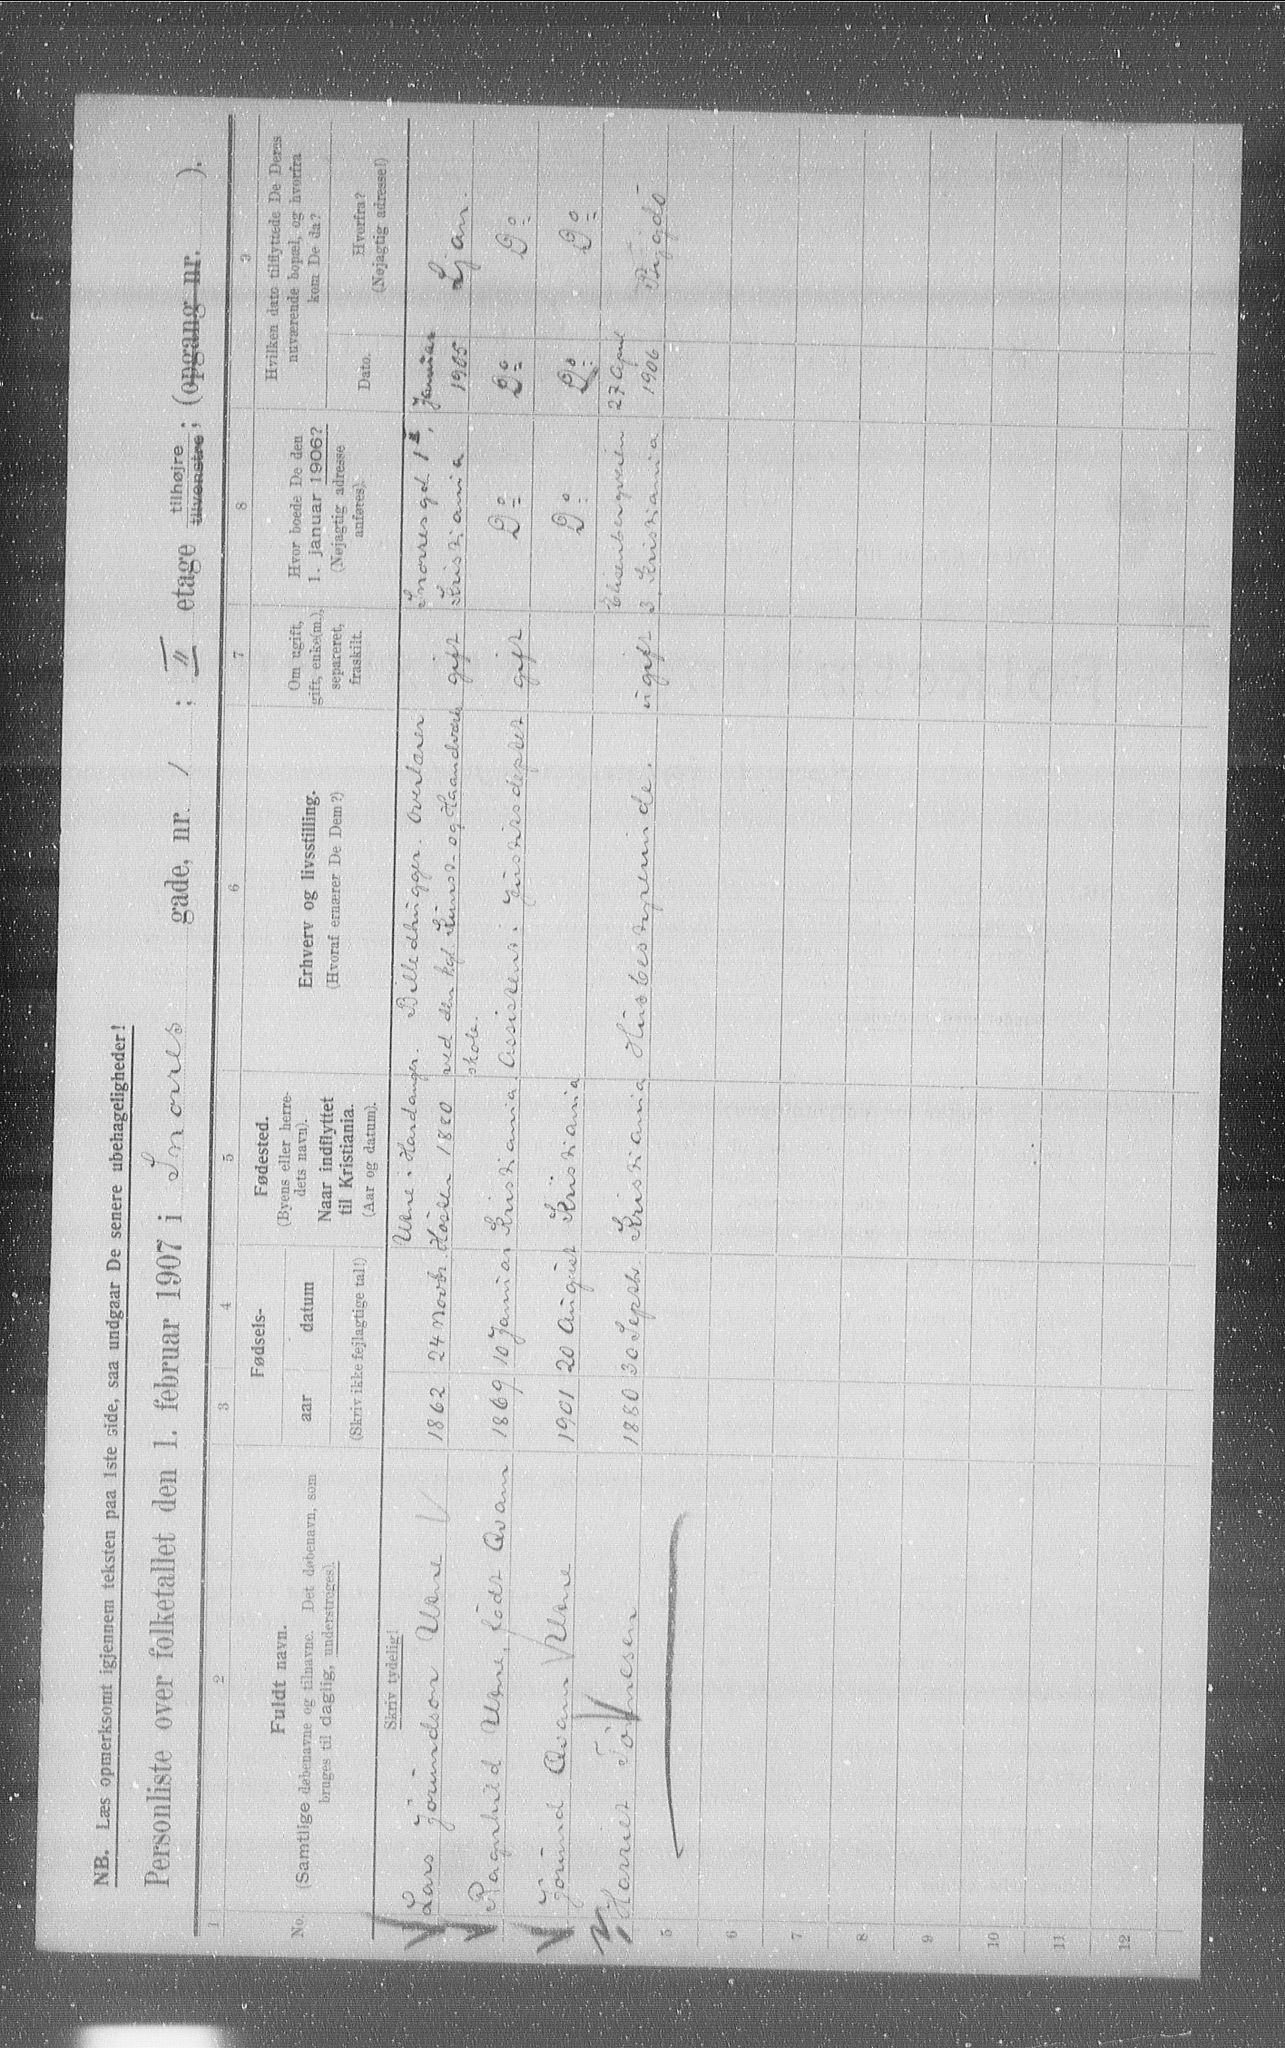 NB. Læs opmerksomt igjennem teksten paa 1ste side, saa undgaar De senere ubehageligheder!
Personliste over folketallet den 1. februar 1907 i Snorres gade, nr. 1 ; II etage tilhøjre tilvenstre ; (opgang nr. ).
1 2 3 4 5 6 7 8 9
No.
Fuldt navn.
(Samtlige døbenavne og tilnavne. Det døbenavn, som
bruges til daglig, understreges).
Fødsels-
aar datum
(Skriv ikke fejlagtige tal!)
Fødested.
(Byens eller herre-
dets navn).
Naar indflyttet
til Kristiania.
(Aar og datum).
Erhverv og livsstilling.
(Hvoraf ernærer De Dem?)
Om ugift,
gift, enke(m.),
separeret,
fraskilt.
Hvor boede De den
1. januar 1906?
(Nøjagtig adresse
anføres).
Hvilken dato tilflyttede De Deres
nuværende bopæl, og hvorfra
kom De da?
Dato.
Hvorfra?
(Nøjagtig adresse!)
Skriv tydelig!
Utne i Hardanger. Billedhugger. Overlærer Snorres gd. 1 II, Januar
Lars Jörundson Utne 1862 24 Novbr. Hösten 1880 ved den kgl Kunst- og Haandverk gift Kristiania 1905 Ljan.
skole.
Ragnhild Utne, födt Qvam 1869 10 Januar Kristiania. Assistent i Justitsdeptet gift Do Do Do
Jörund Qvam Utne 1901 20 August Kristiania Do Do Do
27 April
Harriet Tönnesen 1880 30 Septbr. Kristiania Husbestyrerinde. ugift 3, Kristiania 1906 Bygdö
5
6
7
8
9
10
11
12